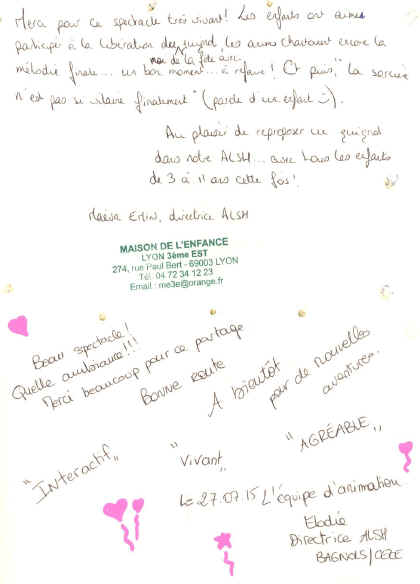 Merci pour ce spectacle très vivant ! Les enfants ont aimé
participer à la libération de guignol, les aiment chantaient encore la
roi de la fête avec
mélodie finale... un bon moment... à refaire ! Et puis, "la sorcière
n'est pas si vilaine finalement" (parole d'un enfant ☺).
Au plaisir de reproposer un guignol
dans notre ALSH... avec tous les enfants
de 3 à 11 ans cette fois !
Maeva Erlin, directrice ALSH
MAISON DE L'ENFANCE
LYON 3ème EST
274, rue Paul Bert - 69003 LYON
Tél. 04 72 34 12 23
Email : me3e@orange.fr
Beau spectacle !
Quelle ambiance !!!
Merci beaucoup pour ce partage
Bonne route
A bientôt
pour de nouvelles
aventures.
"Interactif"
"Vivant"
"AGRÉABLE"
Le 27.07.15 L'équipe d'animation
Elodie
Directrice ALSH
BAGNOLS/CEZE